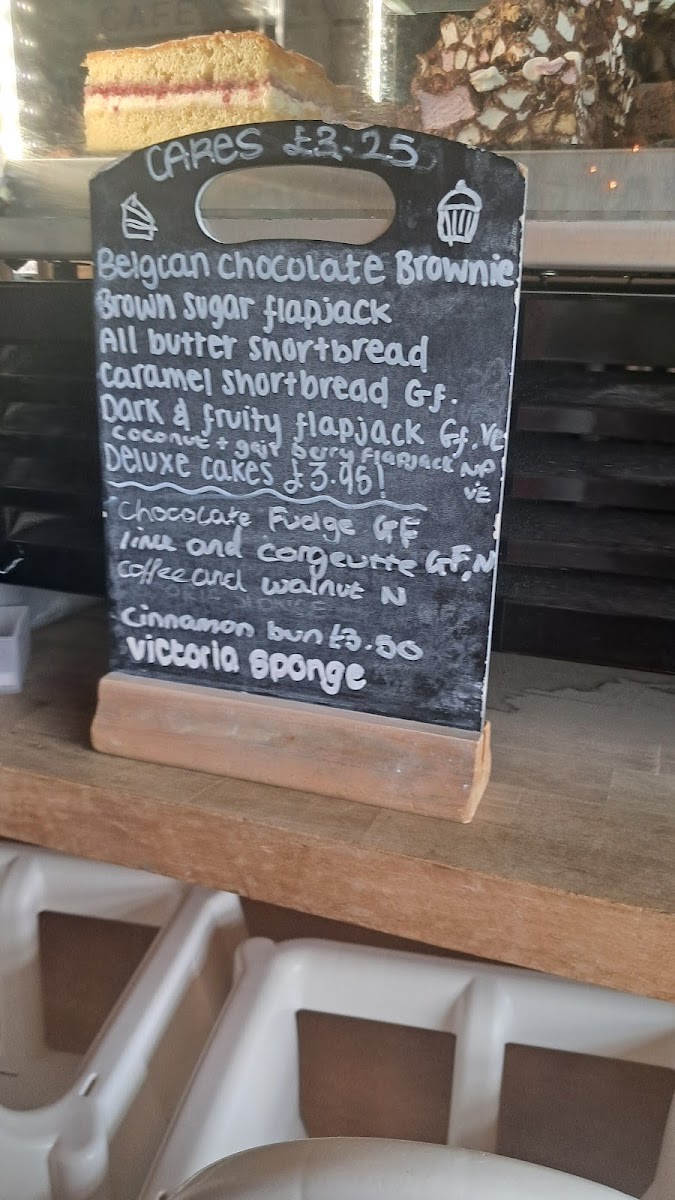 CAFE
CAKES £3.25
Belgian chocolate Brownie
Brown sugar flapjack
All butter shortbread
Caramel shortbread Gf.
Dark & fruity flapjack Gf, VE
Coconut + goji berry flapjack NP
VE
Deluxe cakes £3.95!
Chocolate Fudge GF
lime and corgeutte GF, N
coffee and walnut N
Cinnamon bun £3.50
victoria sponge